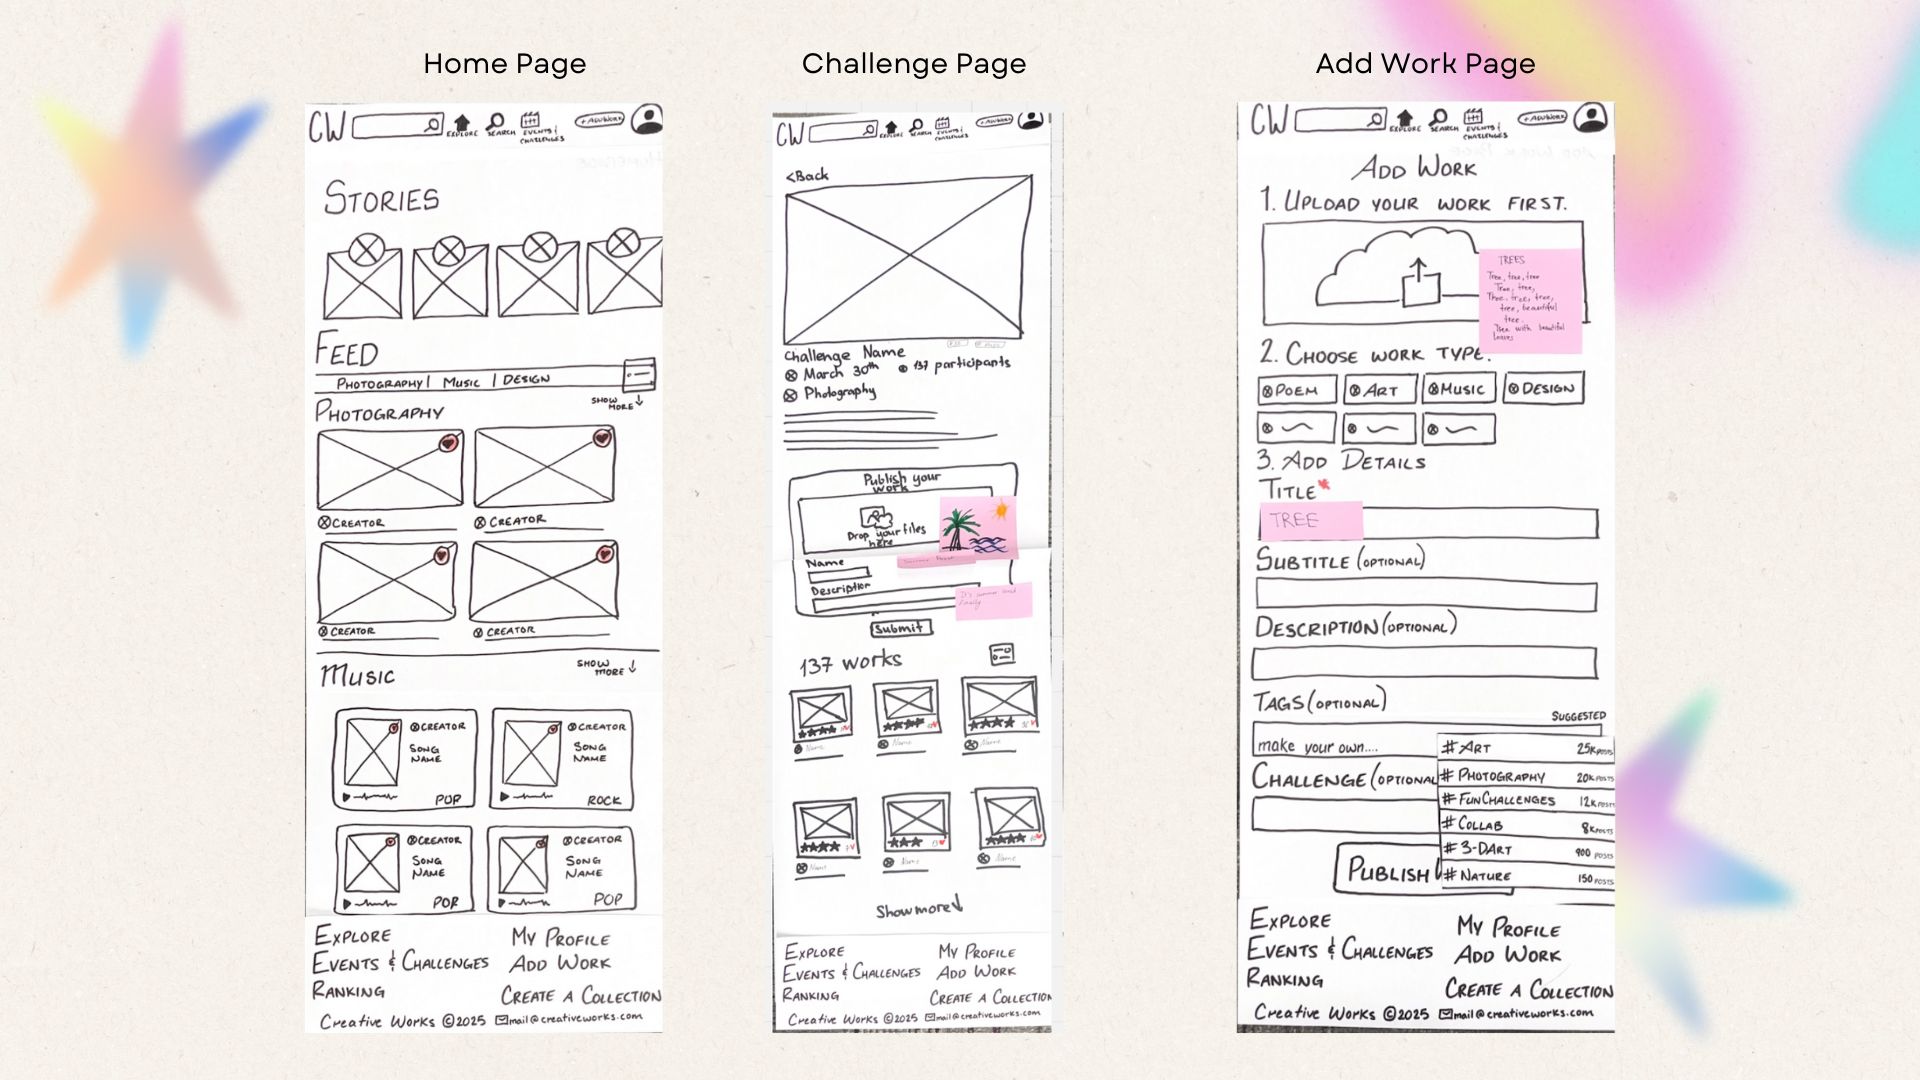 Home Page
CW
EXPLORE
SEARCH
EVENTS &
CHALLENGES
+ ADD WORK
STORIES
FEED
PHOTOGRAPHY | MUSIC | DESIGN
PHOTOGRAPHY
SHOW
MORE ↓
CREATOR
CREATOR
CREATOR
CREATOR
MUSIC
SHOW
MORE ↓
CREATOR
SONG
NAME
POP
CREATOR
SONG
NAME
ROCK
CREATOR
SONG
NAME
POP
CREATOR
SONG
NAME
POP
EXPLORE
MY PROFILE
EVENTS & CHALLENGES
ADD WORK
RANKING
CREATE A COLLECTION
Creative Works ©2025 mail@creativeworks.com
Challenge Page
CW
EXPLORE
SEARCH
EVENTS &
CHALLENGES
+ ADD WORK
<Back
Challenge Name
March 30th
137 participants
Photography
Publish your
work
Drop your files
here
Name
Description
It's summer
finally
Submit
137 works
Name
Name
Name
Name
Name
Name
Show more ↓
EXPLORE
MY PROFILE
EVENTS & CHALLENGES
ADD WORK
RANKING
CREATE A COLLECTION
Creative Works ©2025 mail@creativeworks.com
Add Work Page
CW
EXPLORE
SEARCH
EVENTS &
CHALLENGES
+ ADD WORK
ADD WORK
1. UPLOAD YOUR WORK FIRST.
TREES
Tree, tree, tree
Tree, tree,
Tree, tree, tree,
tree, beautiful
tree.
Tree with beautiful
leaves
2. CHOOSE WORK TYPE.
POEM
ART
MUSIC
DESIGN
3. ADD DETAILS
TITLE*
TREE
SUBTITLE (OPTIONAL)
DESCRIPTION (OPTIONAL)
TAGS (OPTIONAL)
SUGGESTED
make your own....
# ART 25K POSTS
# PHOTOGRAPHY 20K POSTS
# FUNCHALLENGES 12K POSTS
# COLLAB 8K POSTS
# 3-DART 900 POSTS
# NATURE 150 POSTS
CHALLENGE (OPTIONAL
PUBLISH
EXPLORE
MY PROFILE
EVENTS & CHALLENGES
ADD WORK
RANKING
CREATE A COLLECTION
Creative Works ©2025 mail@creativeworks.com